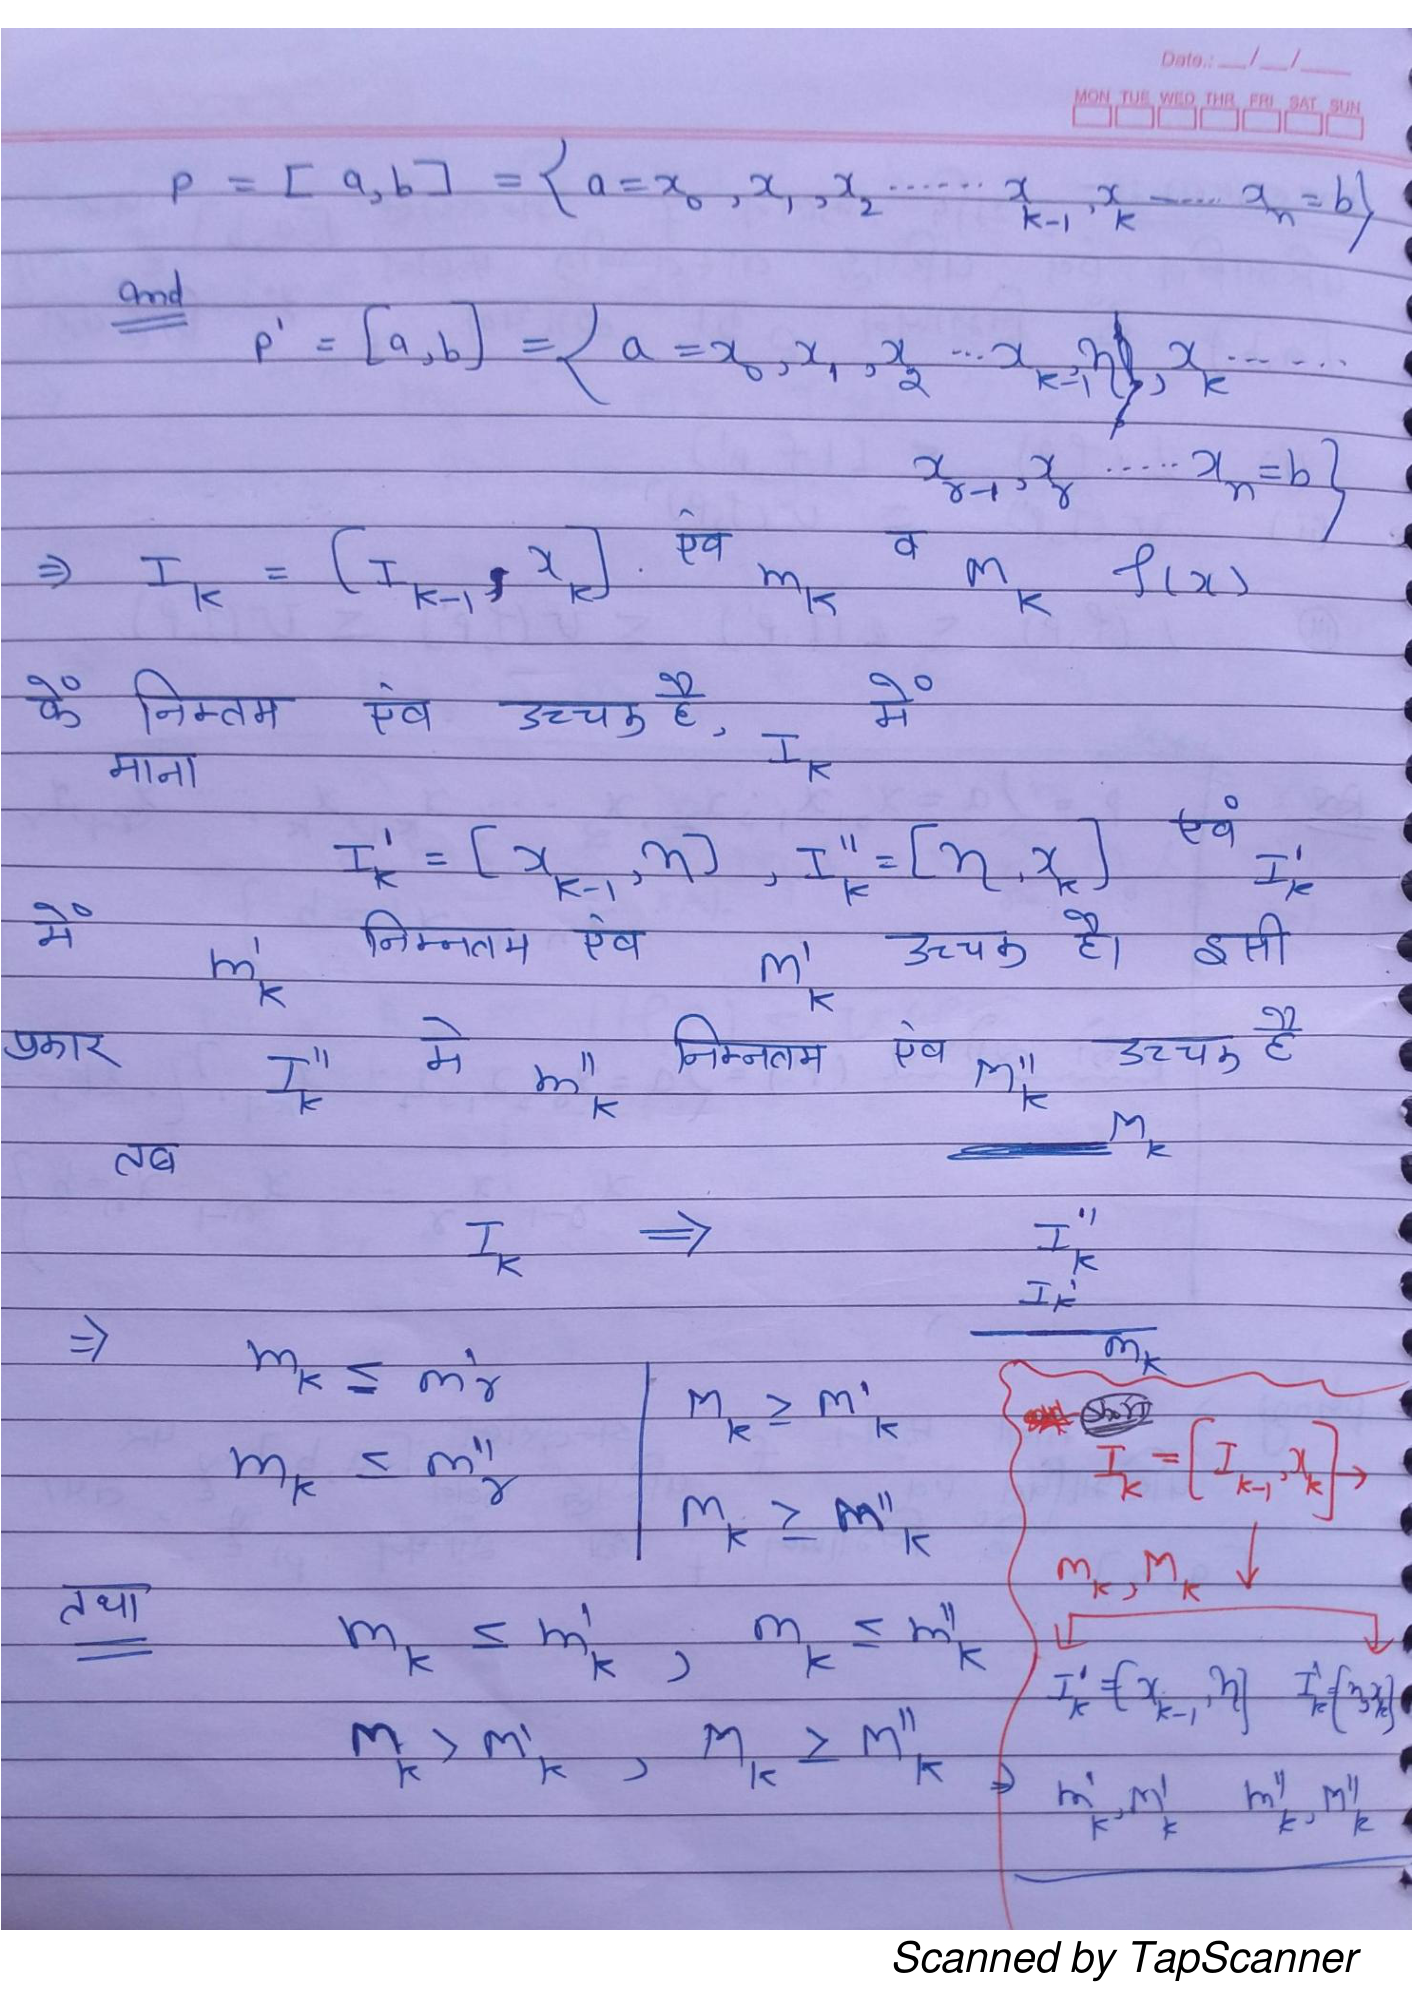 Date.: __/__/____
MON TUE WED THR FRI SAT SUN
P = [a,b] = {a = x₀, x₁, x₂ ...... x_{k-1}, x_k ...... x_n = b}
and
P' = [a,b] = {a = x₀, x₁, x₂ ... x_{k-1}, η, x_k ......
x_{r-1}, x_r ..... x_n = b}
⇒ I_k = [I_{k-1}, x_k]. एंव m_k व M_k f(x)
के निम्तम एंव उच्चक है, I_k में
माना
I'_k = [x_{k-1}, η], I''_k = [η, x_k] एवं I'_k
में m'_k निम्नतम एंव M'_k उच्चक है। इसी
प्रकार I''_k मे m''_k निम्नतम एंव M''_k उच्चक है
तब M_k
I_k ⇒ I''_k
I_k'
m_k
⇒ m_k ≤ m'_r | M_k ≥ M'_k
m_k ≤ m''_r | M_k ≥ M''_k
तथा m_k ≤ m'_k , m_k ≤ m''_k
M_k > M'_k , M_k ≥ M''_k ⇒
Short
I_k = [I_{k-1}, x_k] →
m_k, M_k ↓
I'_k = [x_{k-1}, η] I'_k [η, x_k]
m'_k, M'_k m''_k, M''_k
Scanned by TapScanner